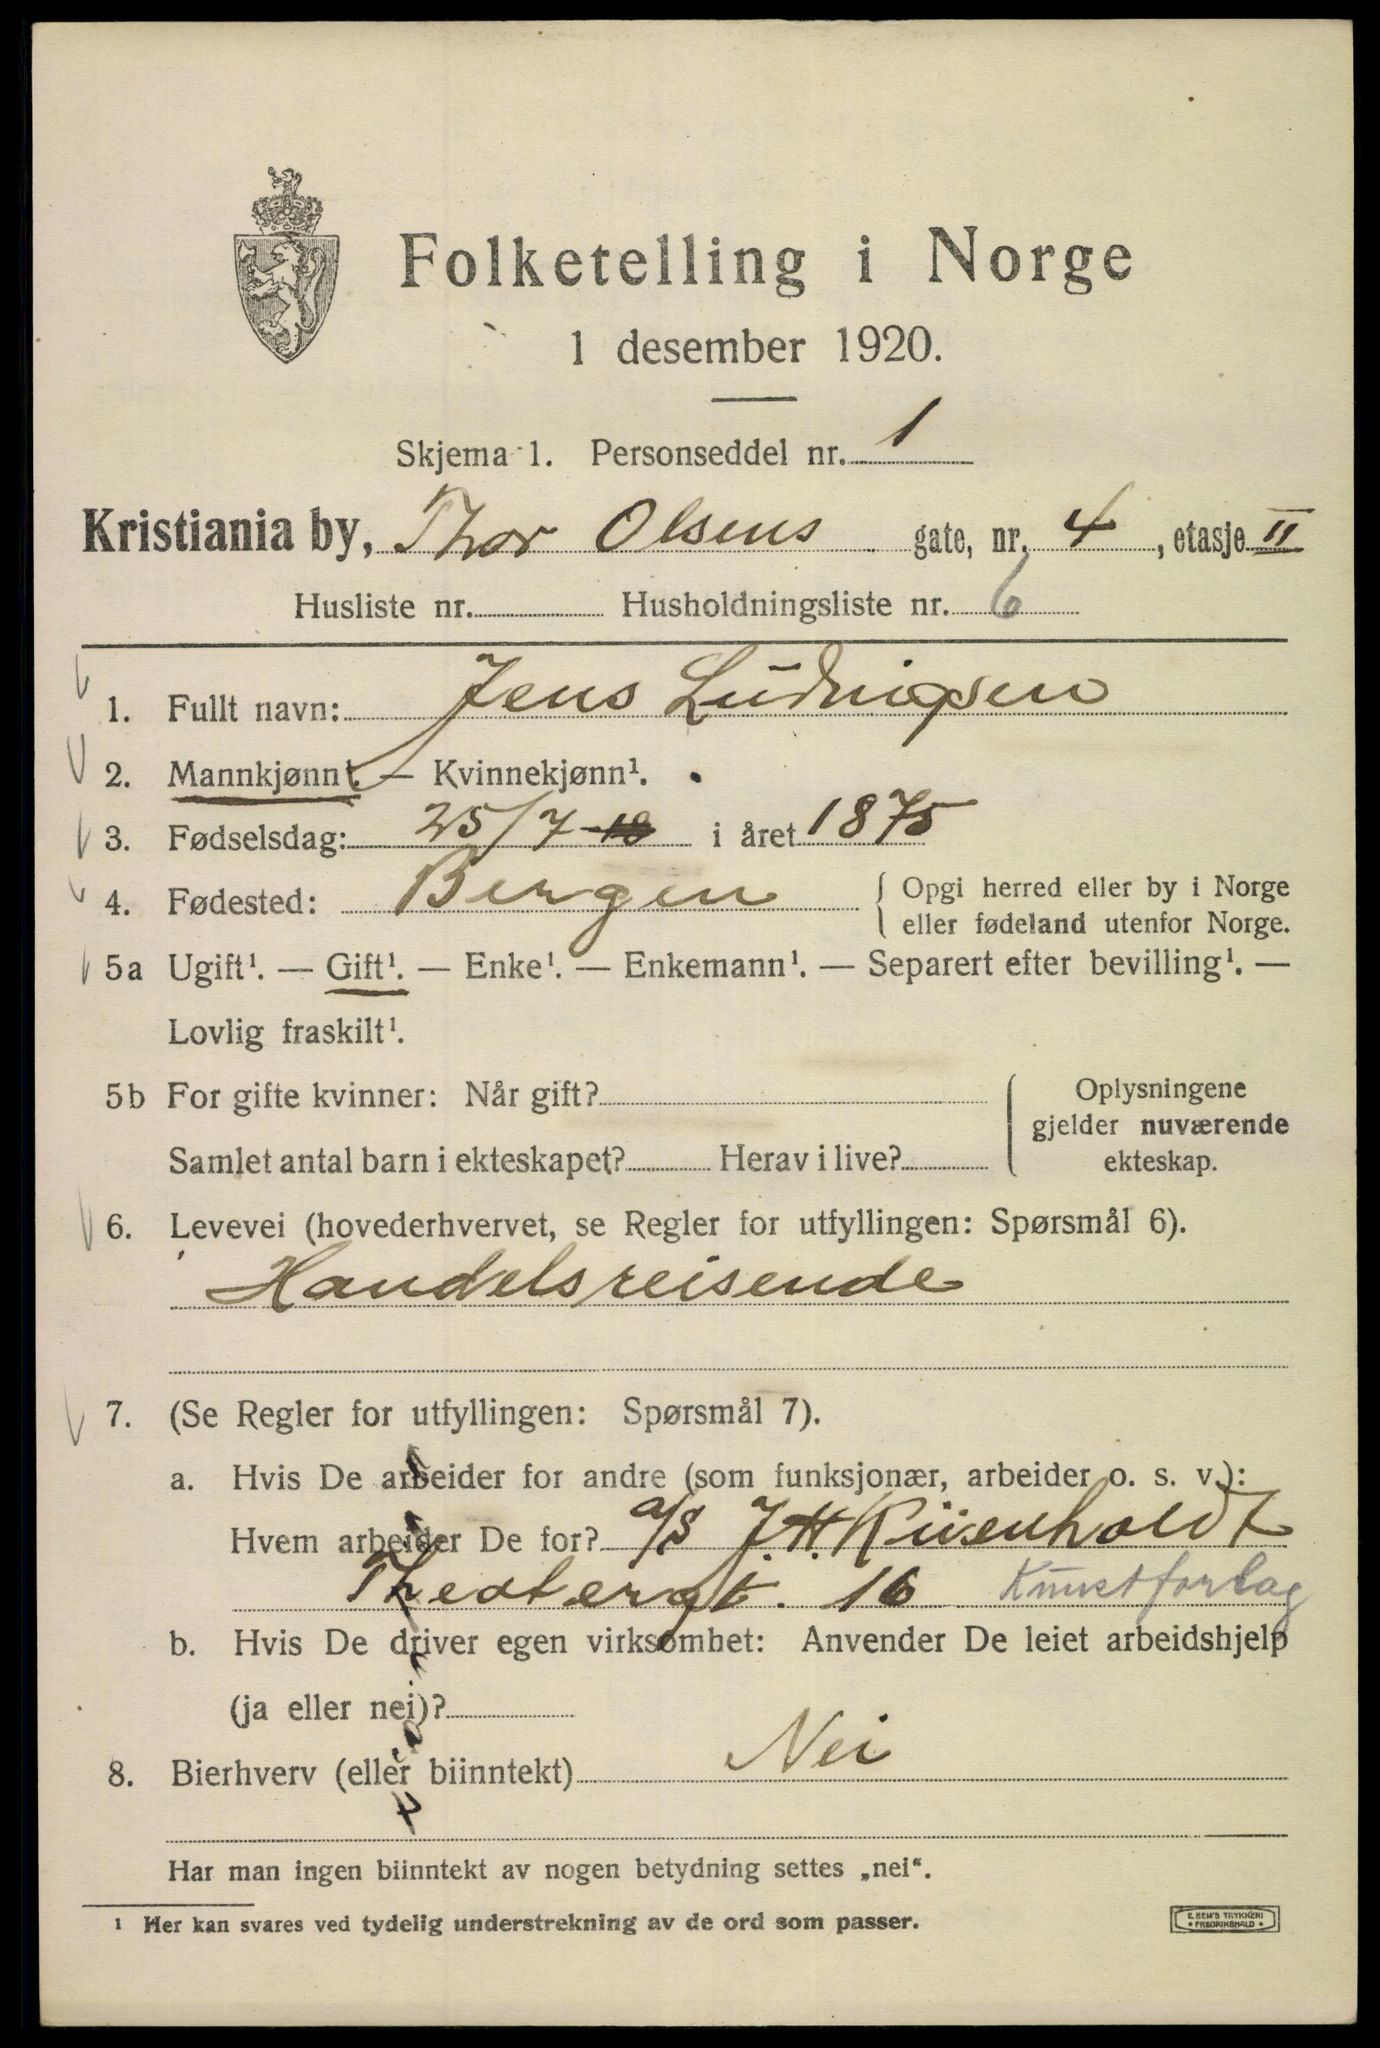 Folketelling i Norge
1 desember 1920.
Skjema 1. Personseddel nr. 1
Kristiania by, Thor Olsens gate, nr. 4, etasje II
Husliste nr. Husholdningsliste nr. 6
1. Fullt navn: Jens Ludvigsen
2. Mannkjønn¹. — Kvinnekjønn¹.
3. Fødselsdag: 25/7 18 i året 1875
4. Fødested: Bergen { Opgi herred eller by i Norge
eller fødeland utenfor Norge.
5a Ugift¹. — Gift¹. — Enke¹. — Enkemann¹. — Separert efter bevilling¹. —
Lovlig fraskilt¹.
5b For gifte kvinner: Når gift?
Samlet antal barn i ekteskapet? Herav i live?
Oplysningene
gjelder nuværende
ekteskap.
6. Levevei (hovederhvervet, se Regler for utfyllingen: Spørsmål 6).
Handelsreisende
7. (Se Regler for utfyllingen: Spørsmål 7).
a. Hvis De arbeider for andre (som funksjonær, arbeider o. s. v.):
Hvem arbeider De for? a/s J. H. Küenholdt
Theatergt. 16 Kunstforlag
b. Hvis De driver egen virksomhet: Anvender De leiet arbeidshjelp
(ja eller nei)?
8. Bierhverv (eller biinntekt) Nei
Har man ingen biinntekt av nogen betydning settes „nei“.
¹ Her kan svares ved tydelig understrekning av de ord som passer.
E. SEM'S TRYKKERI
• FREDRIKSHALD •